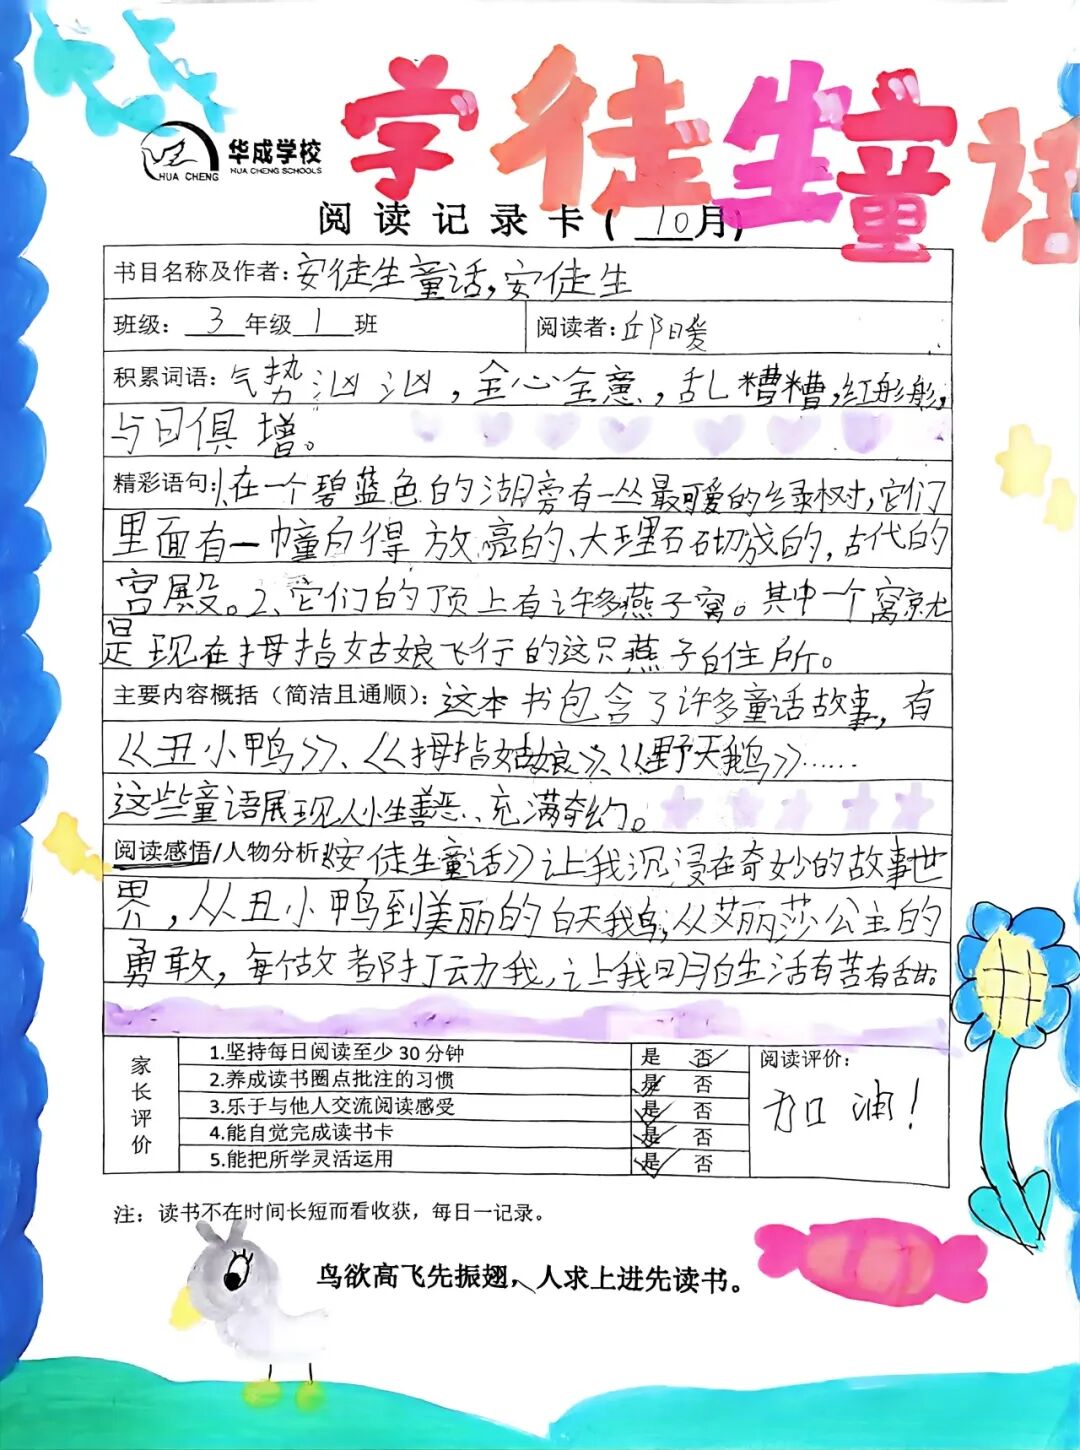 学徒生童话
华成学校
HUA CHENG
HUA CHENG SCHOOLS
阅读记录卡(10月)
书目名称及作者:安徒生童话,安徒生
班级:3年级1班 阅读者:邱阳爱
积累词语:气势汹汹,全心全意,乱糟糟,红彤彤,
与日俱增。
精彩语句:1在一个碧蓝色的湖旁有一丛最可爱的绿树,它们
里面有一幢白得放亮的、大理石砌成的,古代的
宫殿。2、它们的顶上有许多燕子窝。其中一个窝就
是现在拇指姑娘飞行的这只燕子的住所。
主要内容概括(简洁且通顺):这本书包含了许多童话故事,有
《丑小鸭》、《拇指姑娘》、《野天鹅》……
这些童话展现人小生善恶、充满奇幻。
阅读感悟/人物分析:《安徒生童话》让我沉浸在奇妙的故事世
界,从丑小鸭到美丽的白天鹅,从艾丽莎公主的
勇敢,每个故者都打动我,让我明白生活有苦有甜。
家长评价
1.坚持每日阅读至少30分钟 是 否
2.养成读书圈点批注的习惯 是 否
3.乐于与他人交流阅读感受 是 否
4.能自觉完成读书卡 是 否
5.能把所学灵活运用 是 否
阅读评价:
加油!
注:读书不在时间长短而看收获,每日一记录。
鸟欲高飞先振翅,人求上进先读书。